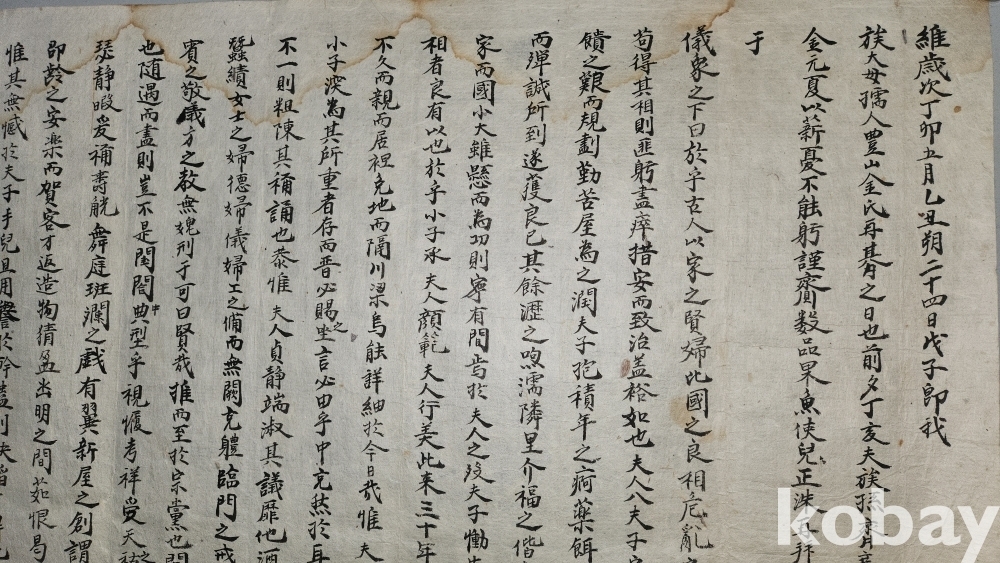 維歲次丁卯五月乙丑朔二十四日戊子卽我
族大母孺人豊山金氏再朞之日也前夕丁亥夫族孫
金元夏以薪憂不能躬謹齎數品果魚使兒正洙
于
儀象之下曰於乎古人以家之賢婦比國之良相危亂
苟得其相則匪躬盡瘁措安而致治盖裕如也夫人入夫子
饋之艱而規劃勤苦屋為之潤夫子抱積年之痾藥餌
而殫誠所到遂獲良已其餘瀝之呴濡隣里介福之偕
家而國小大雖懸而為功則寧有間焉於夫人之歿夫子慟
相者良有以也於乎小子承夫人顔範夫人行美比来三十年
不久而親而居裡充地而隔川梁烏能詳紬於今日哉惟夫
小子深為其所重者存而晋必賜坐之言必由乎中充然於耳
不一則粗陳其稱誦也恭惟夫人貞静端淑其議靡他酒
蠶績女士之婦德婦儀婦工之備而無闕充軆臨門之戒
賓之敬儀方之敎無媿刑于可曰賢哉推而至於宗黨也
也随遇而盡則豈不是閨閤中典型乎視履考祥受天祐之
琴静嘏爰稱壽觥舞庭班瀾之戱有翼新屋之創謂
卽齡之安楽而賀客才返造物猜盈出明之間茹恨曷
惟其無憾於夫子手兒且用譽於幹蠱則夫
kobay